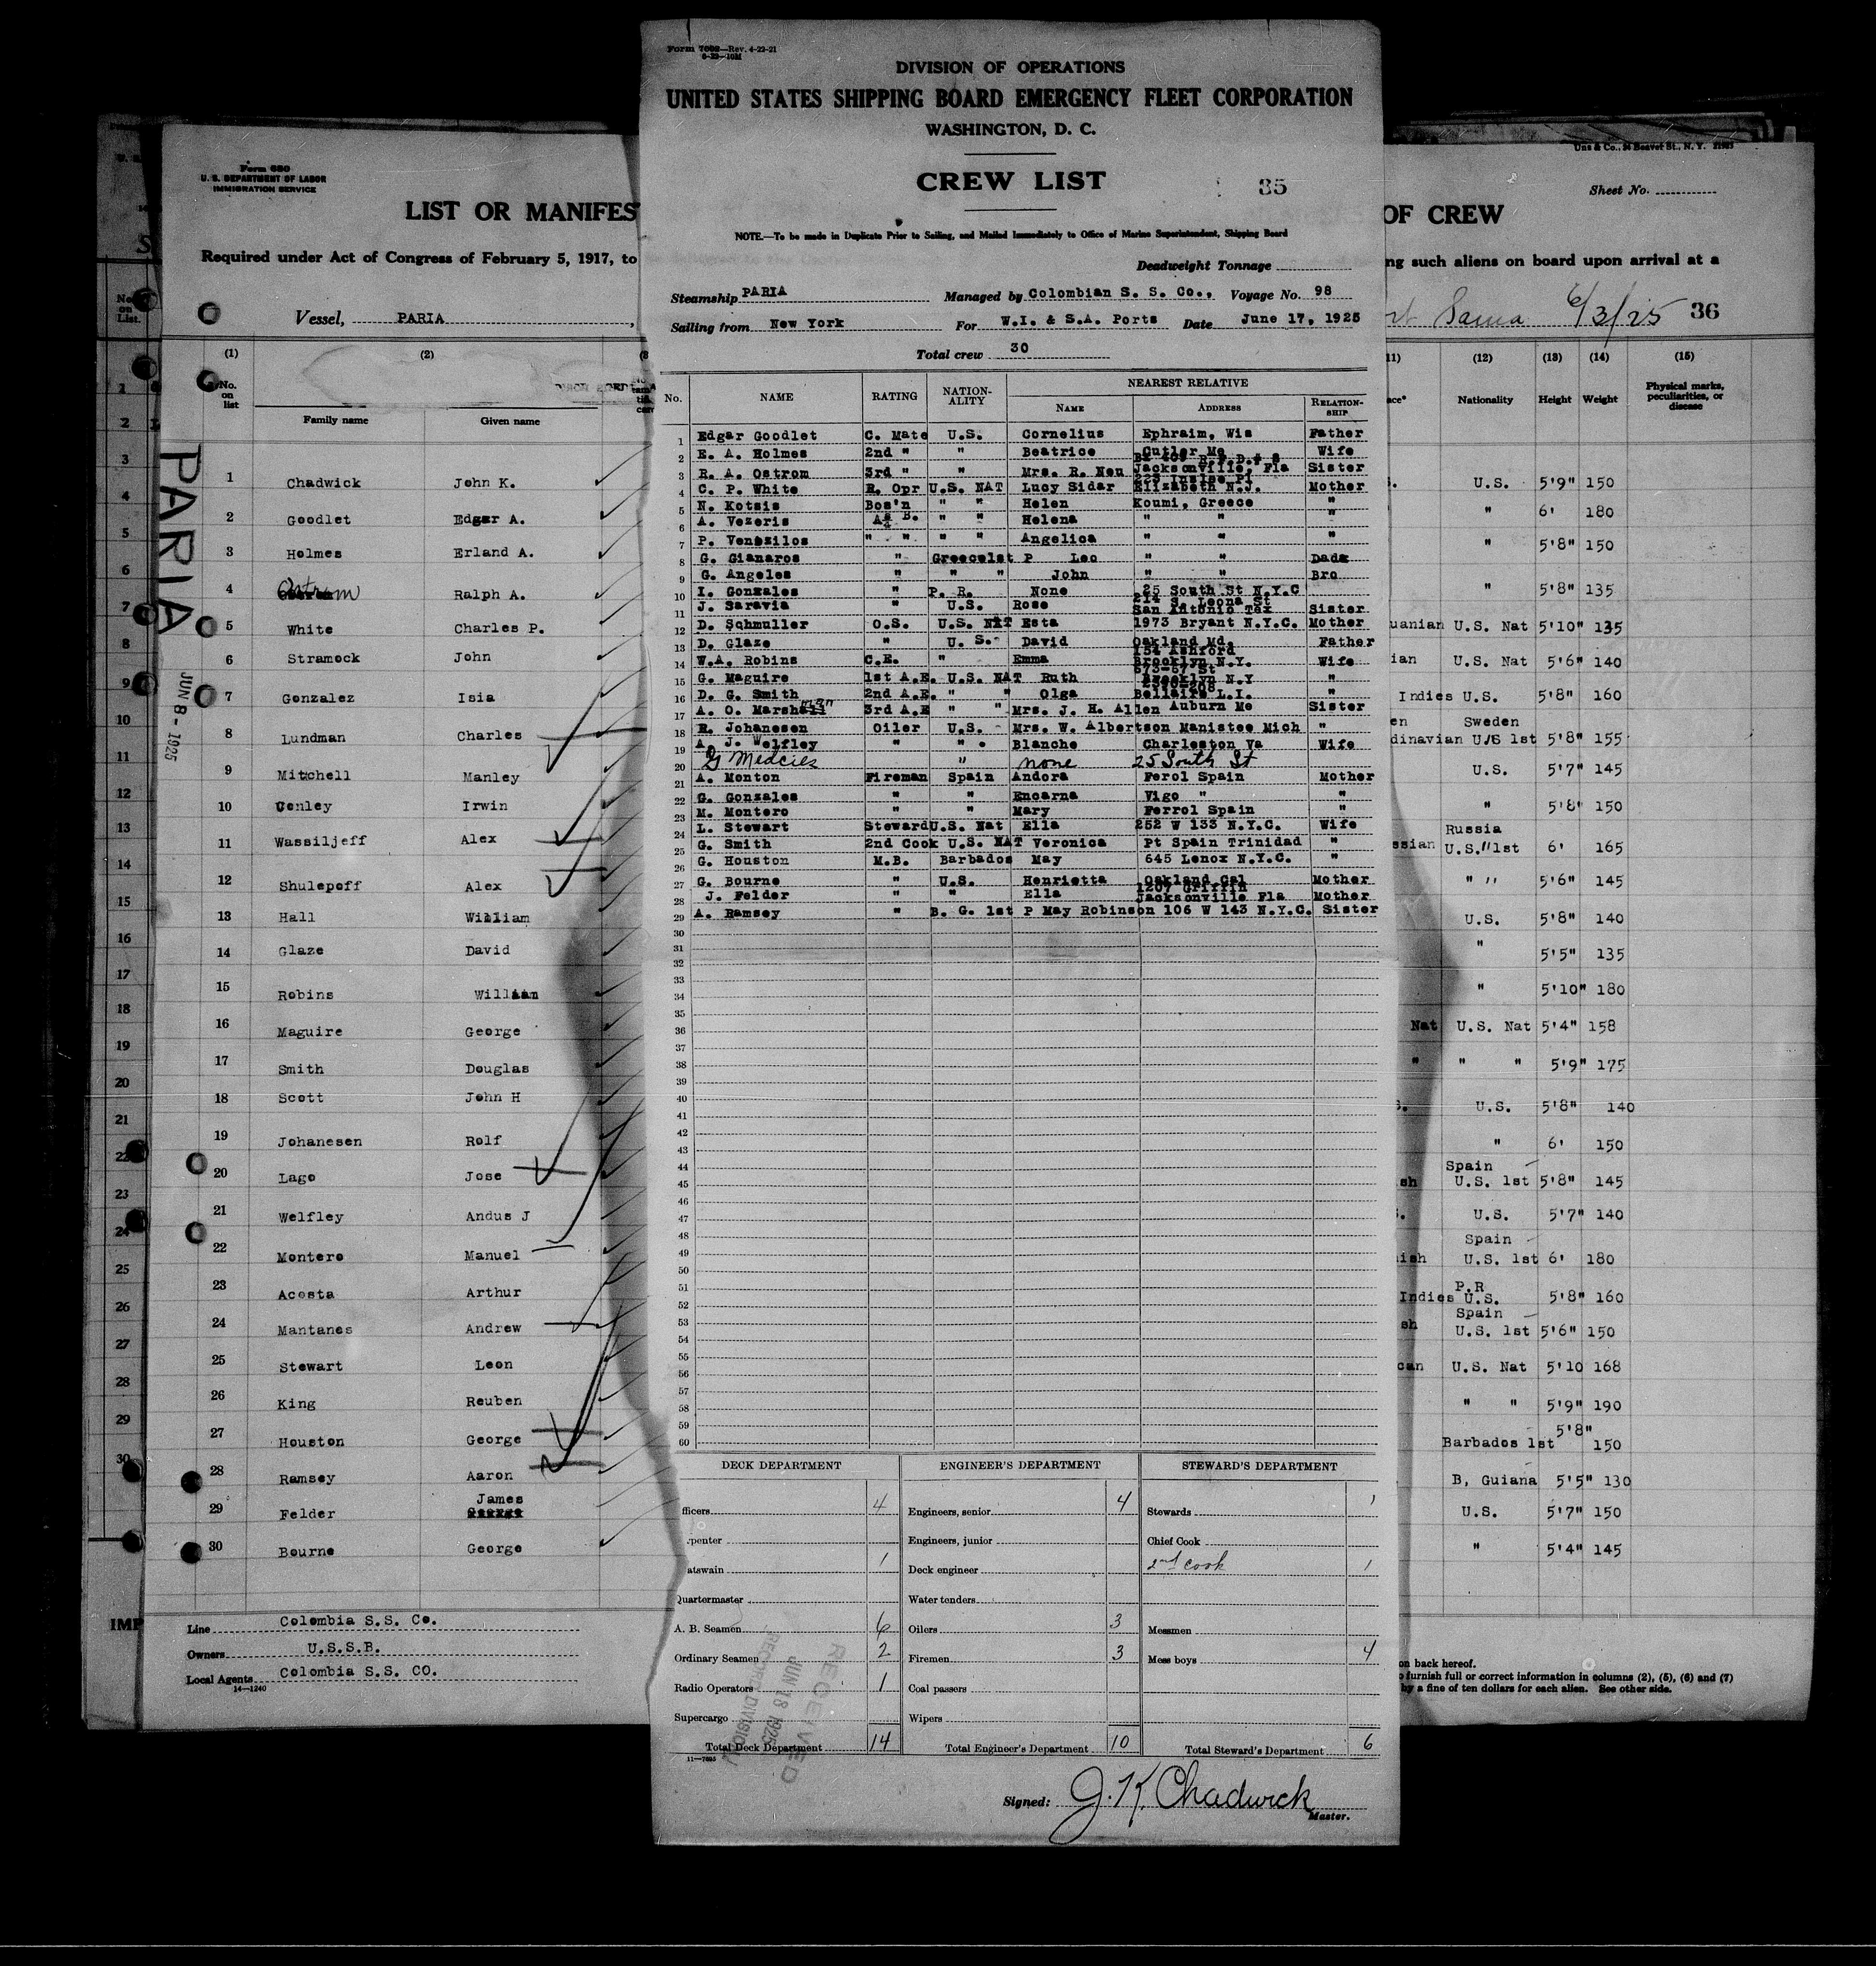 Form 7002—Rev. 4-22-21
DIVISION OF OPERATIONS
UNITED STATES SHIPPING BOARD EMERGENCY FLEET CORPORATION
WASHINGTON, D. C.
CREW LIST
35
NOTE.—To be made in Duplicate Prior to Sailing, and Mailed Immediately to Office of Marine Superintendent, Shipping Board
Deadweight Tonnage
Steamship PARIA Managed by Colombian S. S. Co., Voyage No. 98
Sailing from New York For W.I. & S.A. Ports Date June 17, 1925
Total crew 30
No. NAME RATING NATION-ALITY NEAREST RELATIVE
NAME ADDRESS RELATION-SHIP
1 Edgar Goodlet C. Mate U.S. Cornelius Ephraim, Wis Father
2 E. A. Holmes 2nd " " Beatrice Cutler Me Wife
3 R. A. Ostrom 3rd " " Mrs. R. Neu Jacksonville, Fla Sister
4 C. P. White R. Opr U.S. NAT Lucy Sidar Elizabeth N.J. Mother
5 N. Kotsis Bos'n " " Helen Koumi, Greece "
6 A. Vezeris A. B. " " Helena " " "
7 P. Venezilos " " " " Angelica " " "
8 G. Gianaros " Greece1st P Leo " " Dads
9 G. Angeles " " " John " " Bro
10 I. Gonzales " P. R. None 25 South St N.Y.C
11 J. Saravia " U.S. Rose 214 S. Leona St San Antonio Tex Sister
12 D. Schmuller O.S. U.S. NAT Esta 1973 Bryant N.Y.C. Mother
13 D. Glaze " U. S. David Oakland Md. Father
14 W.A. Robins C.E. " Emma 154 Ashford Brooklyn N.Y. Wife
15 G. Maguire 1st A.E. U.S. NAT Ruth 673-67 St Brooklyn N.Y "
16 D. G. Smith 2nd A.E. " " Olga Bellaire L.I. "
17 A. O. Marshman 3rd A.E " " Mrs. J. H. Allen Auburn Me Sister
18 R. Johanesen Oiler U.S. Mrs. W. Albertson Manistee Mich "
19 A. J. Welfley " " Blanche Charleston Va Wife
20 G Medcies " none 25 South St
21 A. Monton Fireman Spain Andora Ferol Spain Mother
22 G. Gonzales " " Encarna Vigo " "
23 M. Montero " " Mary Ferrol Spain "
24 L. Stewart Steward U.S. Nat Ella 252 W 133 N.Y.C. Wife
25 G. Smith 2nd Cook U.S. NAT Veronica Pt Spain Trinidad "
26 G. Houston M.B. Barbados May 645 Lenox N.Y.C. "
27 G. Bourne " U.S. Henrietta Oakland Cal Mother
28 J. Felder " " Ella 1207 Griffin Jacksonville Fla Mother
29 A. Ramsey " B. G. 1st P May Robinson 106 W 143 N.Y.C. Sister
30
31
32
33
34
35
36
37
38
39
40
41
42
43
44
45
46
47
48
49
50
51
52
53
54
55
56
57
58
59
60
DECK DEPARTMENT ENGINEER'S DEPARTMENT STEWARD'S DEPARTMENT
fficers 4 Engineers, senior 4 Stewards 1
rpenter Engineers, junior Chief Cook
atswain 1 Deck engineer 2nd cook 1
Quartermaster Water tenders
A. B. Seamen 6 Oilers 3 Messmen
Ordinary Seamen 2 Firemen 3 Mess boys 4
Radio Operators 1 Coal passers
Supercargo Wipers
Total Deck Department 14 Total Engineer's Department 10 Total Steward's Department 6
11—7695
RECEIVED
JUN 18 1925
Signed: J. K. Chadwick
Master.
Form 680
U. S. DEPARTMENT OF LABOR
IMMIGRATION SERVICE
LIST OR MANIFES
Required under Act of Congress of February 5, 1917, to
Vessel, PARIA
(1) (2)
No. on list Family name Given name
PARIA
JUN 8 - 1925
1 Chadwick John K.
2 Goodlet Edgar A.
3 Holmes Erland A.
4 Ostrom Ralph A.
5 White Charles P.
6 Stramock John
7 Gonzalez Isia
8 Lundman Charles
9 Mitchell Manley
10 Conley Irwin
11 Wassiljeff Alex
12 Shulepoff Alex
13 Hall William
14 Glaze David
15 Robins William
16 Maguire George
17 Smith Douglas
18 Scott John H
19 Johanesen Rolf
20 Lago Jose
21 Welfley Andus J
22 Montero Manuel
23 Acosta Arthur
24 Mantanes Andrew
25 Stewart Leon
26 King Reuben
27 Houston George
28 Ramsey Aaron
29 Felder James
30 Bourne George
Line Colombia S.S. Co.
Owners U.S.S.B.
Local Agents Colombia S.S. CO.
14—1240
No. on List.
1
2
3
4
5
6
7
8
9
10
11
12
13
14
15
16
17
18
19
20
21
22
23
24
25
26
27
28
29
30
IMP
Sheet No.
OF CREW
ng such aliens on board upon arrival at a
6/3/25 36
11) (12) (13) (14) (15)
ace* Nationality Height Weight Physical marks, peculiarities, or disease
U.S. 5'9" 150
" 6' 180
" 5'8" 150
" 5'8" 135
uanian U.S. Nat 5'10" 135
ian U.S. Nat 5'6" 140
Indies U.S. 5'8" 160
en Sweden
dinavian U/S 1st 5'8" 155
U.S. 5'7" 145
" 5'8' 150
Russia
ssian U.S. 1st 6' 165
" " 5'6" 145
U.S. 5'8" 140
" 5'5" 135
" 5'10" 180
Nat U.S. Nat 5'4" 158
" " " 5'9" 175
U.S. 5'8" 140
" 6' 150
Spain
sh U.S. 1st 5'8" 145
U.S. 5'7" 140
Spain
ish U.S. 1st 6' 180
P.R
Indies U.S. 5'8" 160
Spain
sh U.S. 1st 5'6" 150
can U.S. Nat 5'10 168
" " 5'9" 190
5'8"
Barbados 1st 150
B, Guiana 5'5" 130
U.S. 5'7" 150
" 5'4" 145
on back hereof.
o furnish full or correct information in columns (2), (5), (6) and (7)
by a fine of ten dollars for each alien. See other side.